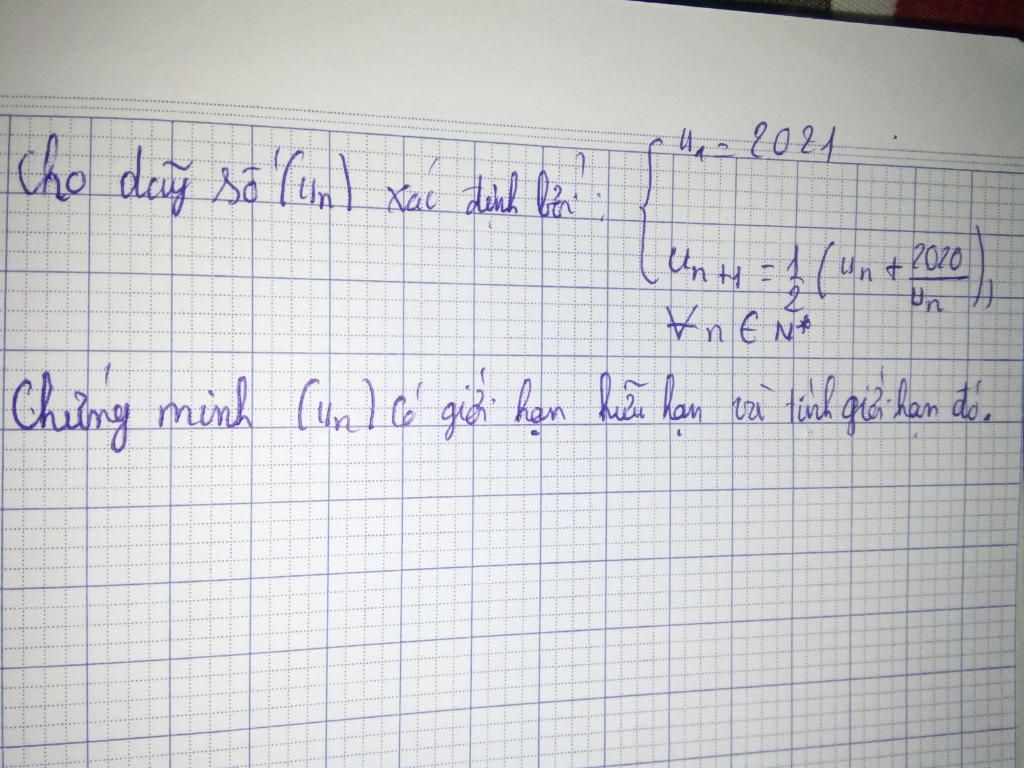 Cho dãy số (un) xác định bởi : { u1 = 2021
un+1 = 1/2 (un + 2020/un),
∀n ∈ N*
Chứng minh (un) có giới hạn hữu hạn và tính giới hạn đó.